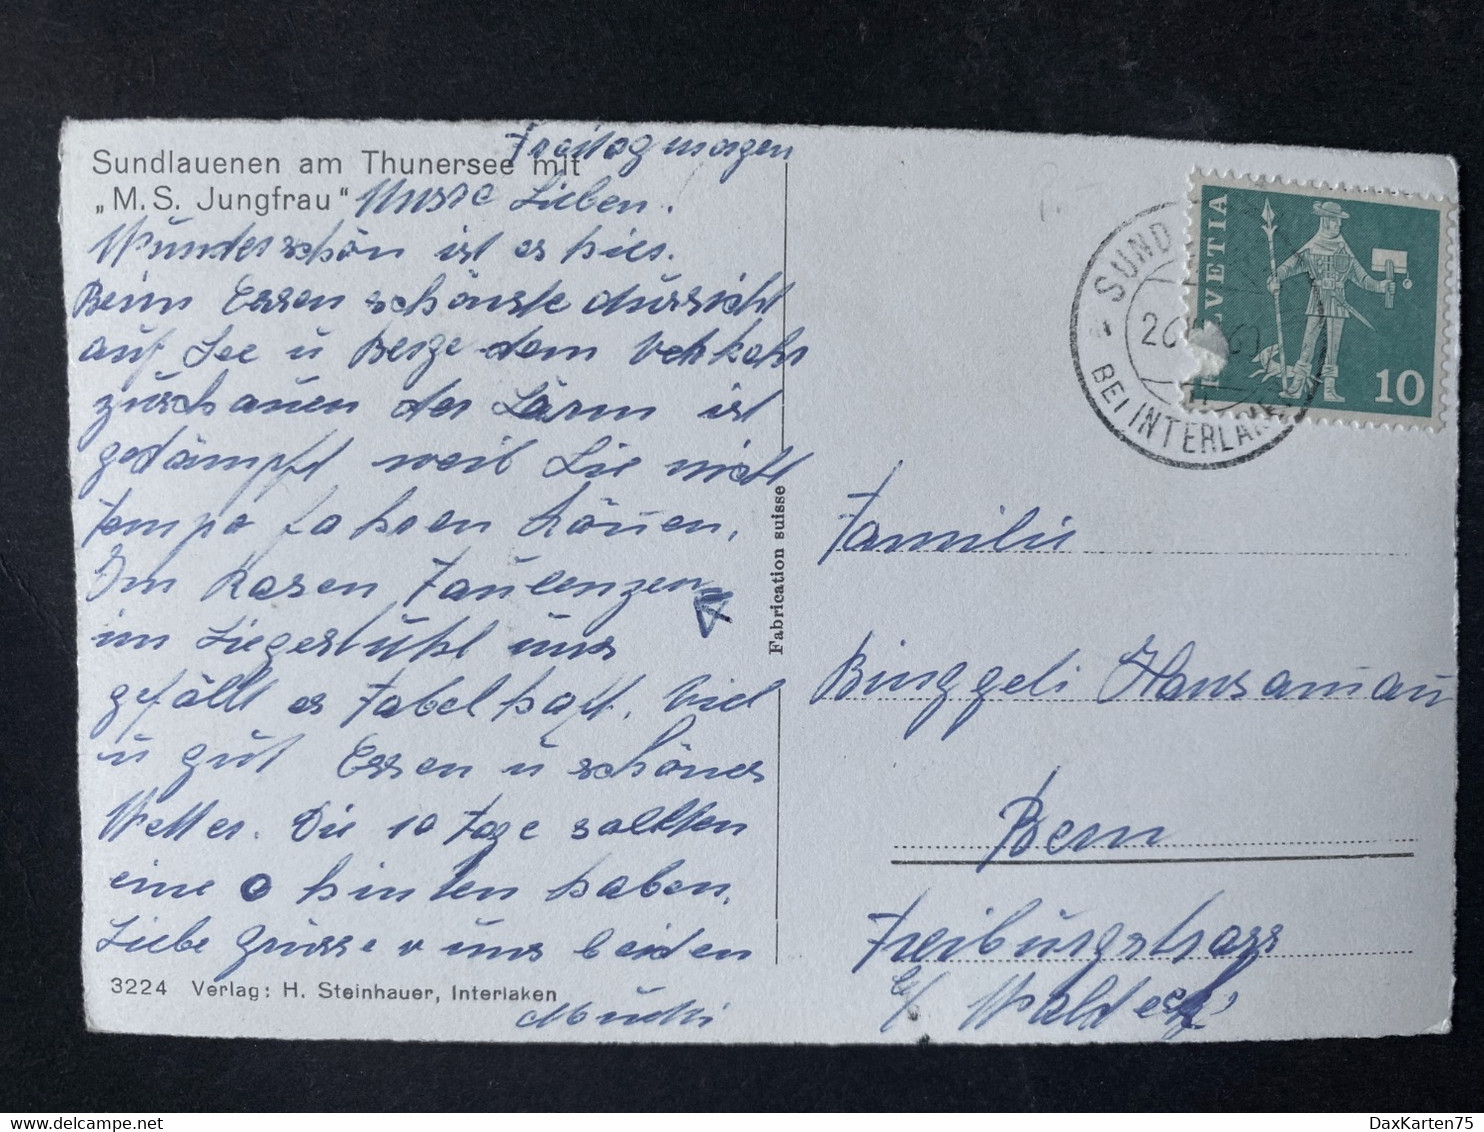 Freitag morgen
Sundlauenen am Thunersee mit
„M.S. Jungfrau"
Unsre Lieben.
Wunderschön ist es hier.
Beim Essen schönste Aussicht
auf See u Berge dem Verkehr
zuschauen der Lärm ist
gedämpft weil Sie nicht
Tempo fahren können.
Im Rasen Faulenzen
im Liegestuhl uns
gefällt es Fabelhaft. Viel
u gut Essen u schönes
Wetter. Die 10 Tage sollten
eine 0 hinten haben.
Liebe Grüsse v uns beiden
3224 Verlag: H. Steinhauer, Interlaken
Fabrication suisse
SUND
26
BEI INTERLAKEN
HELVETIA
10
Familie
Binggeli Hansamau
Bern
Freiburgstrass
b/ Waldeck
DaxKarten75